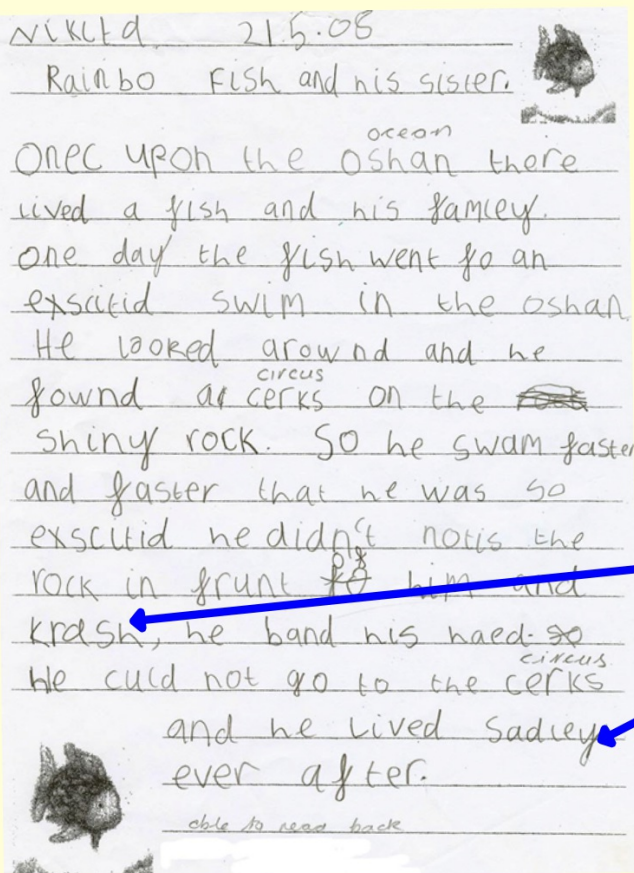 Nikita 21.5.08
Rainbo Fish and his sister.
ocean
Onec upon the oshan there
lived a fish and his famley.
one day the fish went fo an
exscitid swim in the oshan.
He looked arownd and he
circus
fownd a cerks on the
shiny rock. So he swam faster
and faster that he was so
exscitid he didn't notis the
of
rock in frunt him and
krash, he band his haed. so
circus
He culd not go to the cerks
and he lived sadley
ever after.
able to read back